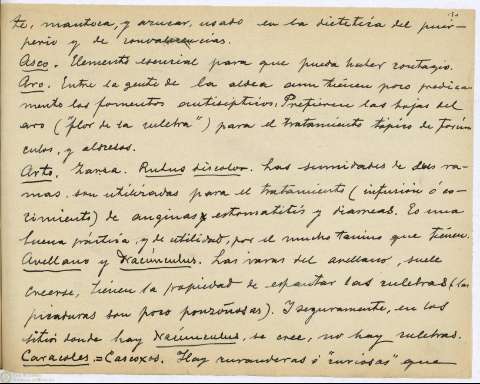 te, manteca, y azucar, usado en la dietetica del puer-
perio y de convalecencias.
Asco. Elemento esencial para que pueda haber contagio.
Aro. Entre la gente de la aldea aun tienen poco predica-
mento los fomentos antisepticos. Prefieren las hojas del
aro ("flor de la culebra") para el tratamiento tópico de forún-
culos, y abscesos.
Arto. Zarza. Rubus discolor. Las sumidades de sus ra-
mas son utilizadas para el tratamiento (infusión ó co-
cimiento) de anginas, estomatitis y diarreas. Es una
buena práctica, y de utilidad, por el mucho tanino que tienen.
Avellano y Xacúnculus. Las varas del avellano, suele
creerse, tienen la propiedad de espantar las culebras (las
picaduras son poco ponzoñosas). I seguramente, en los
sitios donde hay Xacúnculus, se cree, no hay culebras.
Caracoles = Cascoxos. Hay curanderas ó "curiosas" que